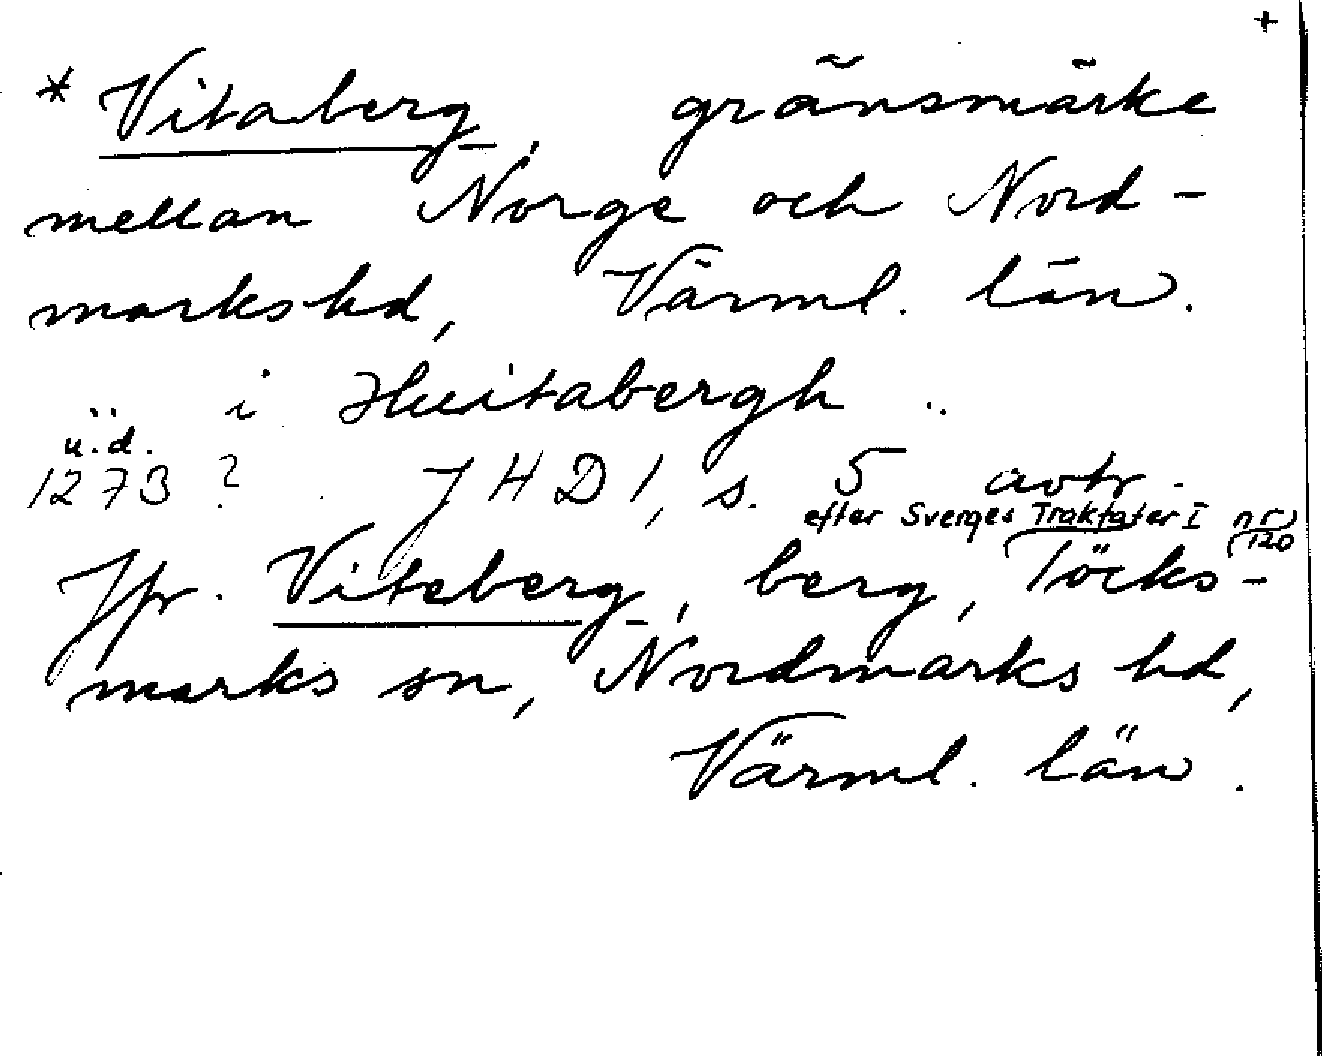 +
* Vitaberg, gränsmärke
mellan Norge och Nord-
markshd, Värml. län.
.. i Huitabergh ..
u.d.
1273? JHD 1, s. 5 avtr.
efter Sverges Traktater I nr 120
Jfr. Viteberg, berg, Töcks-
marks sn, Nordmarks hd,
Värml. län.